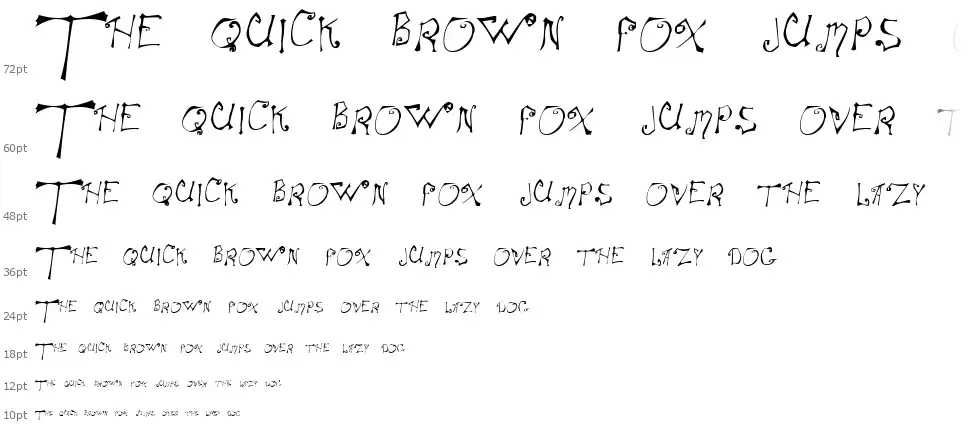 The quick brown fox jumps
72pt
The quick brown fox jumps over
60pt
The quick brown fox jumps over the lazy
48pt
The quick brown fox jumps over the lazy dog
36pt
The quick brown fox jumps over the lazy dog
24pt
The quick brown fox jumps over the lazy dog
18pt
The quick brown fox jumps over the lazy dog
12pt
The quick brown fox jumps over the lazy dog
10pt